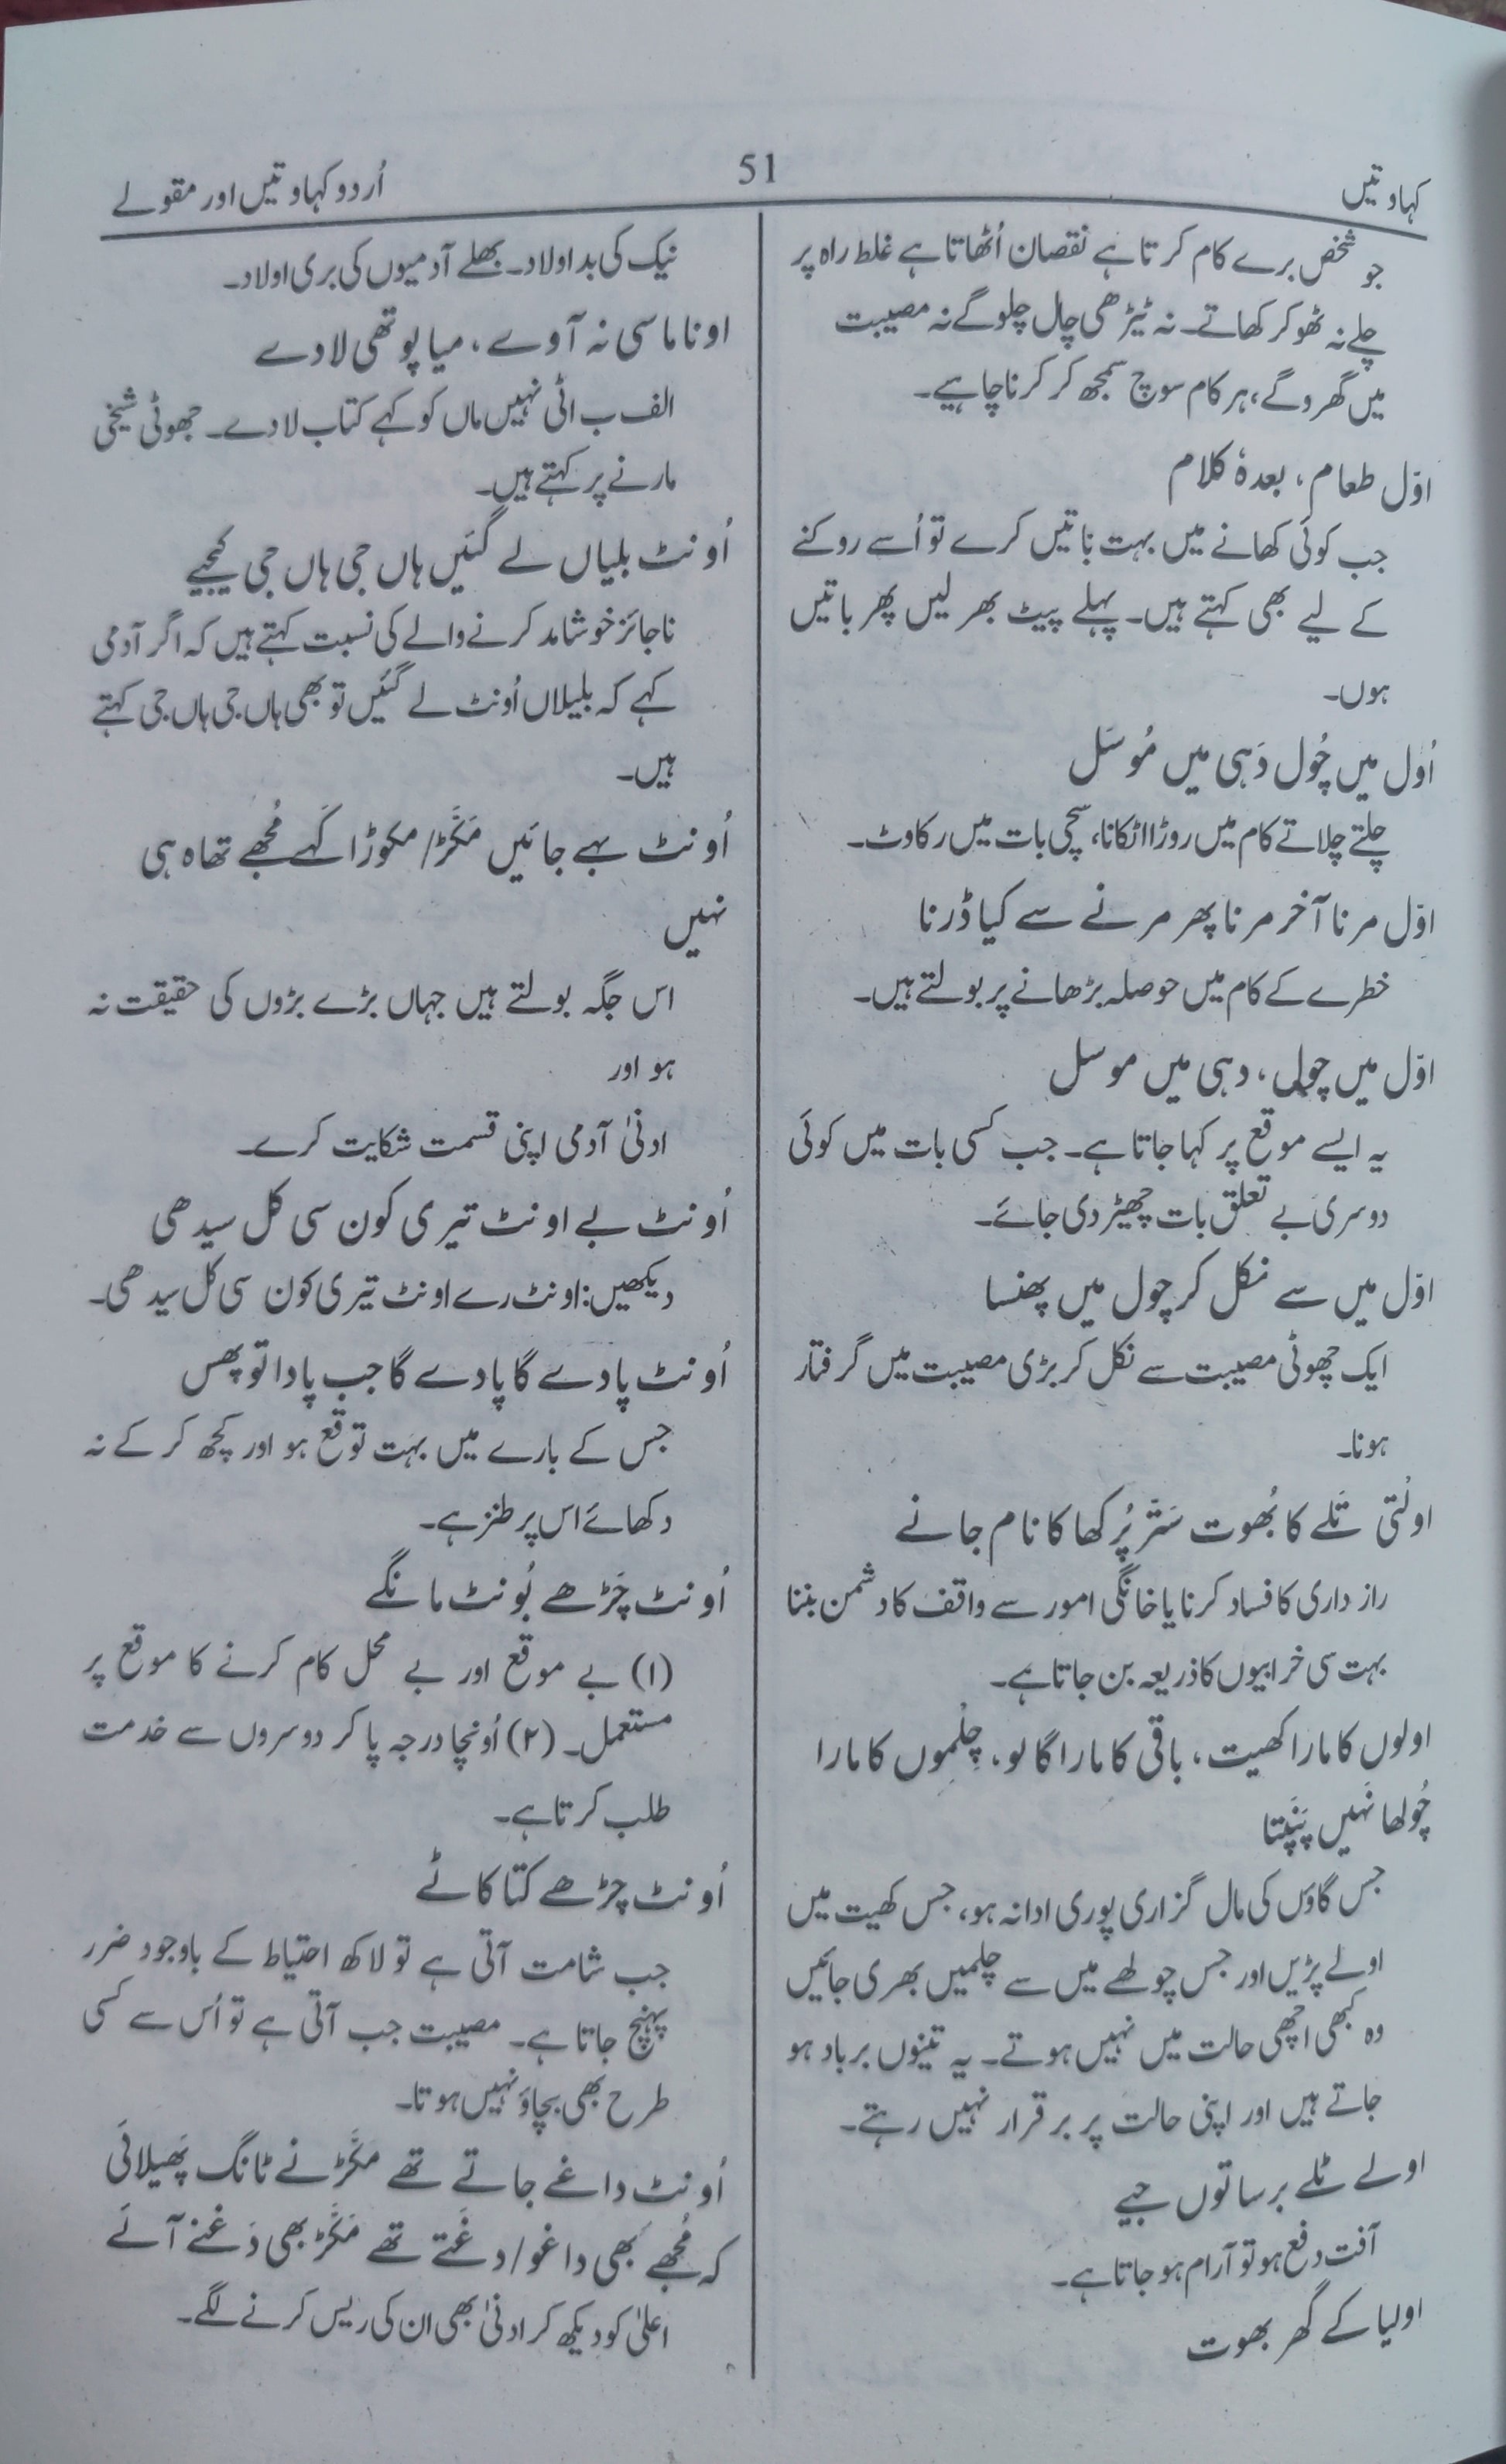 کہاوتیں
51
اُردو کہاوتیں اور مقولے
جو شخص برے کام کرتا ہے نقصان اُٹھاتا ہے غلط راہ پر
چلے نہ ٹھوکر کھاتے۔ نہ ٹیڑھی چال چلوگے نہ مصیبت
میں گھروگے، ہر کام سوچ سمجھ کر کرنا چاہیے۔
اوّل طعام، بعدہٗ کلام
جب کوئی کھانے میں بہت باتیں کرے تو اُسے روکنے
کے لیے بھی کہتے ہیں۔ پہلے پیٹ بھر لیں پھر باتیں
ہوں۔
اُوَل میں چُول دَہی میں مُوسَل
چلتے چلاتے کام میں روڑا اٹکانا، سچی بات میں رکاوٹ۔
اوّل مرنا آخر مرنا پھر مرنے سے کیا ڈرنا
خطرے کے کام میں حوصلہ بڑھانے پر بولتے ہیں۔
اوّل میں چول، دہی میں موسل
یہ ایسے موقع پر کہا جاتا ہے۔ جب کسی بات میں کوئی
دوسری بے تعلق بات چھیڑ دی جائے۔
اوّل میں سے نکل کر چول میں پھنسا
ایک چھوٹی مصیبت سے نکل کر بڑی مصیبت میں گرفتار
ہونا۔
اولْتی تَلے کا بُھوت سَتَّر پُرکھا کا نام جانے
راز داری کا فساد کرنا یا خانگی امور سے واقف کا دشمن بننا
بہت سی خرابیوں کا ذریعہ بن جاتا ہے۔
اولوں کا مارا کھیت، باقی کا مارا گالو، چِلْموں کا مارا
چُولھا نَہیں پَنَپتا
جس گاؤں کی مال گزاری پوری ادا نہ ہو، جس کھیت میں
اولے پڑیں اور جس چولھے میں سے چلمیں بھری جائیں
وہ کبھی اچھی حالت میں نہیں ہوتے۔ یہ تینوں برباد ہو
جاتے ہیں اور اپنی حالت پر برقرار نہیں رہتے۔
اولے ٹلے برساتوں جیے
آفت دفع ہو تو آرام ہو جاتا ہے۔
اولیا کے گھر بھوت
نیک کی بد اولاد۔ بھلے آدمیوں کی بری اولاد۔
اوناماسی نہ آوے، میا پوتھی لادے
الف ب اٹی نہیں ماں کو کہے کتاب لادے۔ جھوٹی شیخی
مارنے پر کہتے ہیں۔
اُونٹ بلیاں لے گئیں ہاں جی ہاں جی کیجیے
ناجائز خوشامد کرنے والے کی نسبت کہتے ہیں کہ اگر آدمی
کہے کہ بلیلاں اُونٹ لے گئیں تو بھی ہاں جی ہاں جی کہتے
ہیں۔
اُونٹ بہے جائیں مَکَّڑ/ مکوڑا کَہے مُجھے تھاہ ہی
نہیں
اس جگہ بولتے ہیں جہاں بڑے بڑوں کی حقیقت نہ
ہو اور
ادنیٰ آدمی اپنی قسمت شکایت کرے۔
اُونٹ بے اونٹ تیری کون سی کل سیدھی
دیکھیں: اونٹ رے اونٹ تیری کون سی کل سیدھی۔
اُونٹ پادے گا پادے گا جب پادا تو پھس
جس کے بارے میں بہت توقع ہو اور کچھ کر کے نہ
دکھائے اس پر طنز ہے۔
اُونٹ چَڑھے بُونٹ مانگے
(۱) بے موقع اور بے محل کام کرنے کا موقع پر
مستعمل۔ (۲) اُونچا درجہ پا کر دوسروں سے خدمت
طلب کرتا ہے۔
اُونٹ چڑھے کتا کاٹے
جب شامت آتی ہے تو لاکھ احتیاط کے باوجود ضرر
پہنچ جاتا ہے۔ مصیبت جب آتی ہے تو اُس سے کسی
طرح بھی بچاؤ نہیں ہوتا۔
اُونٹ داغے جاتے تھے مَکَّڑ نے ٹانگ پَھیلائی
کہ مُجھے بَھی داغو/ دغَتے تھے مَکَّڑ بھی دَغنے آئے
اعلیٰ کو دیکھ کر ادنیٰ بھی ان کی ریس کرنے لگے۔